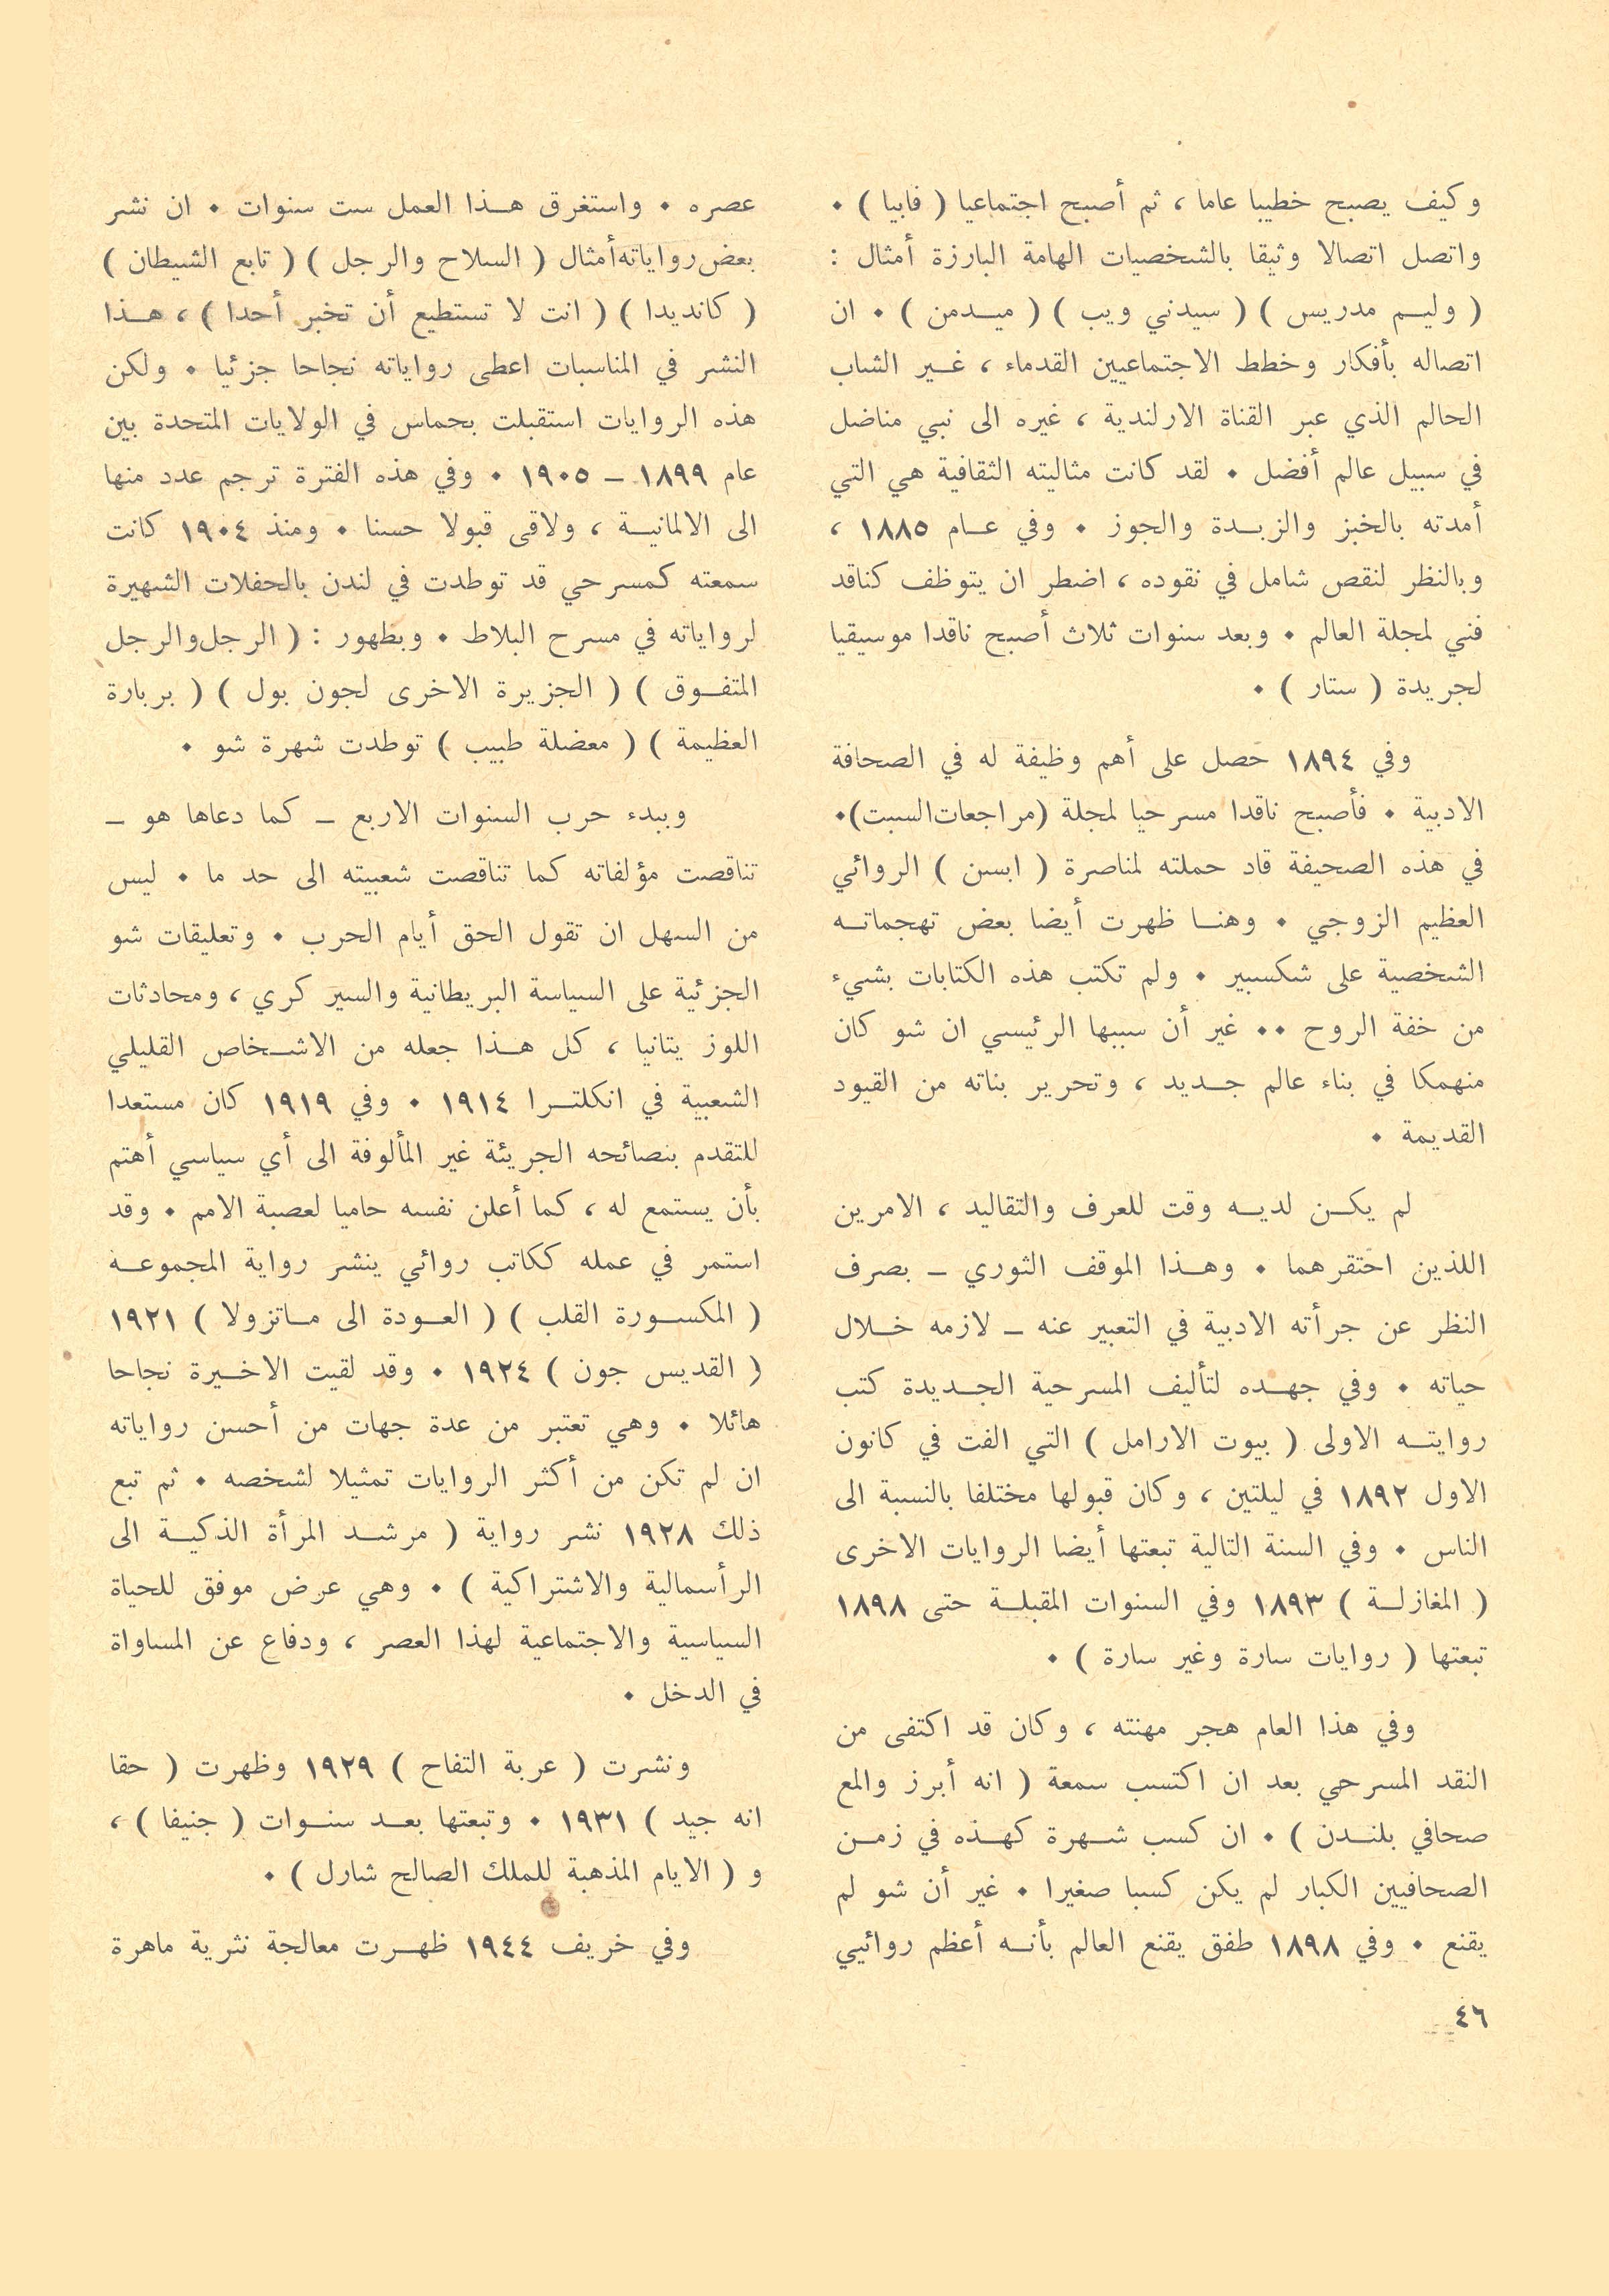 وكيف يصبح خطيبا عاما ، ثم أصبح اجتماعيا ( فابيا ) ٠
واتصل اتصالا وثيقا بالشخصيات الهامة البارزة أمثال :
( وليـم مدريس ) ( سيدني ويب ) ( ميـدمن ) ٠ ان
اتصاله بأفكار وخطط الاجتماعيين القدماء ، غـير الشاب
الحالم الذي عبر القناة الارلندية ، غيره الى نبي مناضل
في سبيل عالم أفضل ٠ لقد كانت مثاليته الثقافية هي التي
أمدته بالخبز والزبـدة والجوز ٠ وفي عـام ١٨٨٥ ،
وبالنظر لنقص شامل في نقوده ، اضطر ان يتوظف كناقد
فني لمجلة العالم ٠ وبعد سنوات ثلاث أصبح ناقدا موسيقيا
لجريدة ( ستار ) ٠
وفي ١٨٩٤ حصل على أهم وظيفة له في الصحافة
الادبية ٠ فأصبح ناقدا مسرحيا لمجلة (مراجعات السبت)٠
في هذه الصحيفة قاد حملته لمناصرة ( ابسن ) الروائي
العظيم الزوجي ٠ وهنـا ظهرت أيضا بعض تهجماتـه
الشخصية على شكسبير ٠ ولم تكتب هذه الكتابات بشيء
من خفة الروح ٠٠ غير أن سببها الرئيسي ان شو كان
منهمكا في بناء عالم جـديد ، وتحرير بناته من القيود
القديمة ٠
لم يكـن لديـه وقت للعرف والتقاليد ، الامرين
اللذين احتقرهما ٠ وهـذا الموقف الثوري ـ بصرف
النظر عن جرأته الادبية في التعبير عنه ـ لازمه خـلال
حياته ٠ وفي جهـده لتأليف المسرحية الجـديدة كتب
روايتـه الاولى ( بيوت الارامل ) التي الفت في كانون
الاول ١٨٩٢ في ليلتين ، وكان قبولها مختلفا بالنسبة الى
الناس ٠ وفي السنة التالية تبعتها أيضا الروايات الاخرى
( المغازلـة ) ١٨٩٣ وفي السنوات المقبلـة حتى ١٨٩٨
تبعتها ( روايات سارة وغير سارة ) ٠
وفي هذا العام هجر مهنته ، وكان قد اكتفى من
النقد المسرحي بعد ان اكتسب سمعة ( انه أبرز والمع
صحافي بلنـدن ) ٠ ان كسب شـهرة كهـذه في زمـن
الصحافيين الكبار لم يكن كسبا صغيرا ٠ غير أن شو لم
يقنع ٠ وفي ١٨٩٨ طفق يقنع العالم بأنـه أعظم روائيي
عصره ٠ واستغرق هـذا العمل ست سنوات ٠ ان نشر
بعض رواياته أمثال ( السلاح والرجل ) ( تابع الشيطان )
( كانديدا ) ( انت لا تستطيع أن تخبر أحدا ) ، هـذا
النشر في المناسبات اعطى رواياته نجاحا جزئيا ٠ ولكن
هذه الروايات استقبلت بحماس في الولايات المتحدة بين
عام ١٨٩٩ ـ ١٩٠٥ ٠ وفي هذه الفترة ترجم عدد منها
الى الالمانيـة ، ولاقى قبولا حسنا ٠ ومنذ ١٩٠٤ كانت
سمعته كمسرحي قد توطدت في لندن بالحفلات الشهيرة
لرواياته في مسرح البلاط ٠ وبظهور : ( الرجل والرجل
المتفـوق ) ( الجزيرة الاخرى لجون بول ) ( بربارة
العظيمة ) ( معضلة طبيب ) توطدت شهرة شو ٠
وببدء حرب السنوات الاربع ـ كما دعاها هو ـ
تناقصت مؤلفاته كما تناقصت شعبيته الى حد ما ٠ ليس
من السهل ان تقول الحق أيام الحرب ٠ وتعليقات شو
الجزئية على السياسة البريطانية والسير كري ، ومحادثات
اللوز يتانيا ، كل هـذا جعله من الاشـخاص القليلي
الشعبية في انكلتـرا ١٩١٤ ٠ وفي ١٩١٩ كان مستعدا
للتقدم بنصائحه الجريئة غير المألوفة الى أي سياسي أهتم
بأن يستمع له ، كما أعلن نفسه حاميا لعصبة الامم ٠ وقد
استمر في عمله ككاتب روائي ينشر رواية المجموعـة
( المكسـورة القلب ) ( العـودة الى مـاتزولا ) ١٩٢١
( القديس جون ) ١٩٢٤ ٠ وقد لقيت الاخـيرة نجاحا
هائلا ٠ وهي تعتبر من عدة جهات من أحسن رواياته
ان لم تكن من أكثر الروايات تمثيلا لشخصه ٠ ثم تبع
ذلك ١٩٢٨ نشر رواية ( مرشـد المرأة الذكيـة الى
الرأسمالية والاشتراكية ) ٠ وهي عرض موفق للحياة
السياسية والاجتماعية لهذا العصر ، ودفاع عن المساواة
في الدخل ٠
ونشرت ( عربة التفاح ) ١٩٢٩ وظهرت ( حقا
انه جيد ) ١٩٣١ ٠ وتبعتها بعـد سنـوات ( جنيفا ) ،
و ( الايام المذهبة للملك الصالح شارل ) ٠
وفي خريف ١٩٤٤ ظهـرت معالجة نثرية ماهرة
٤٦